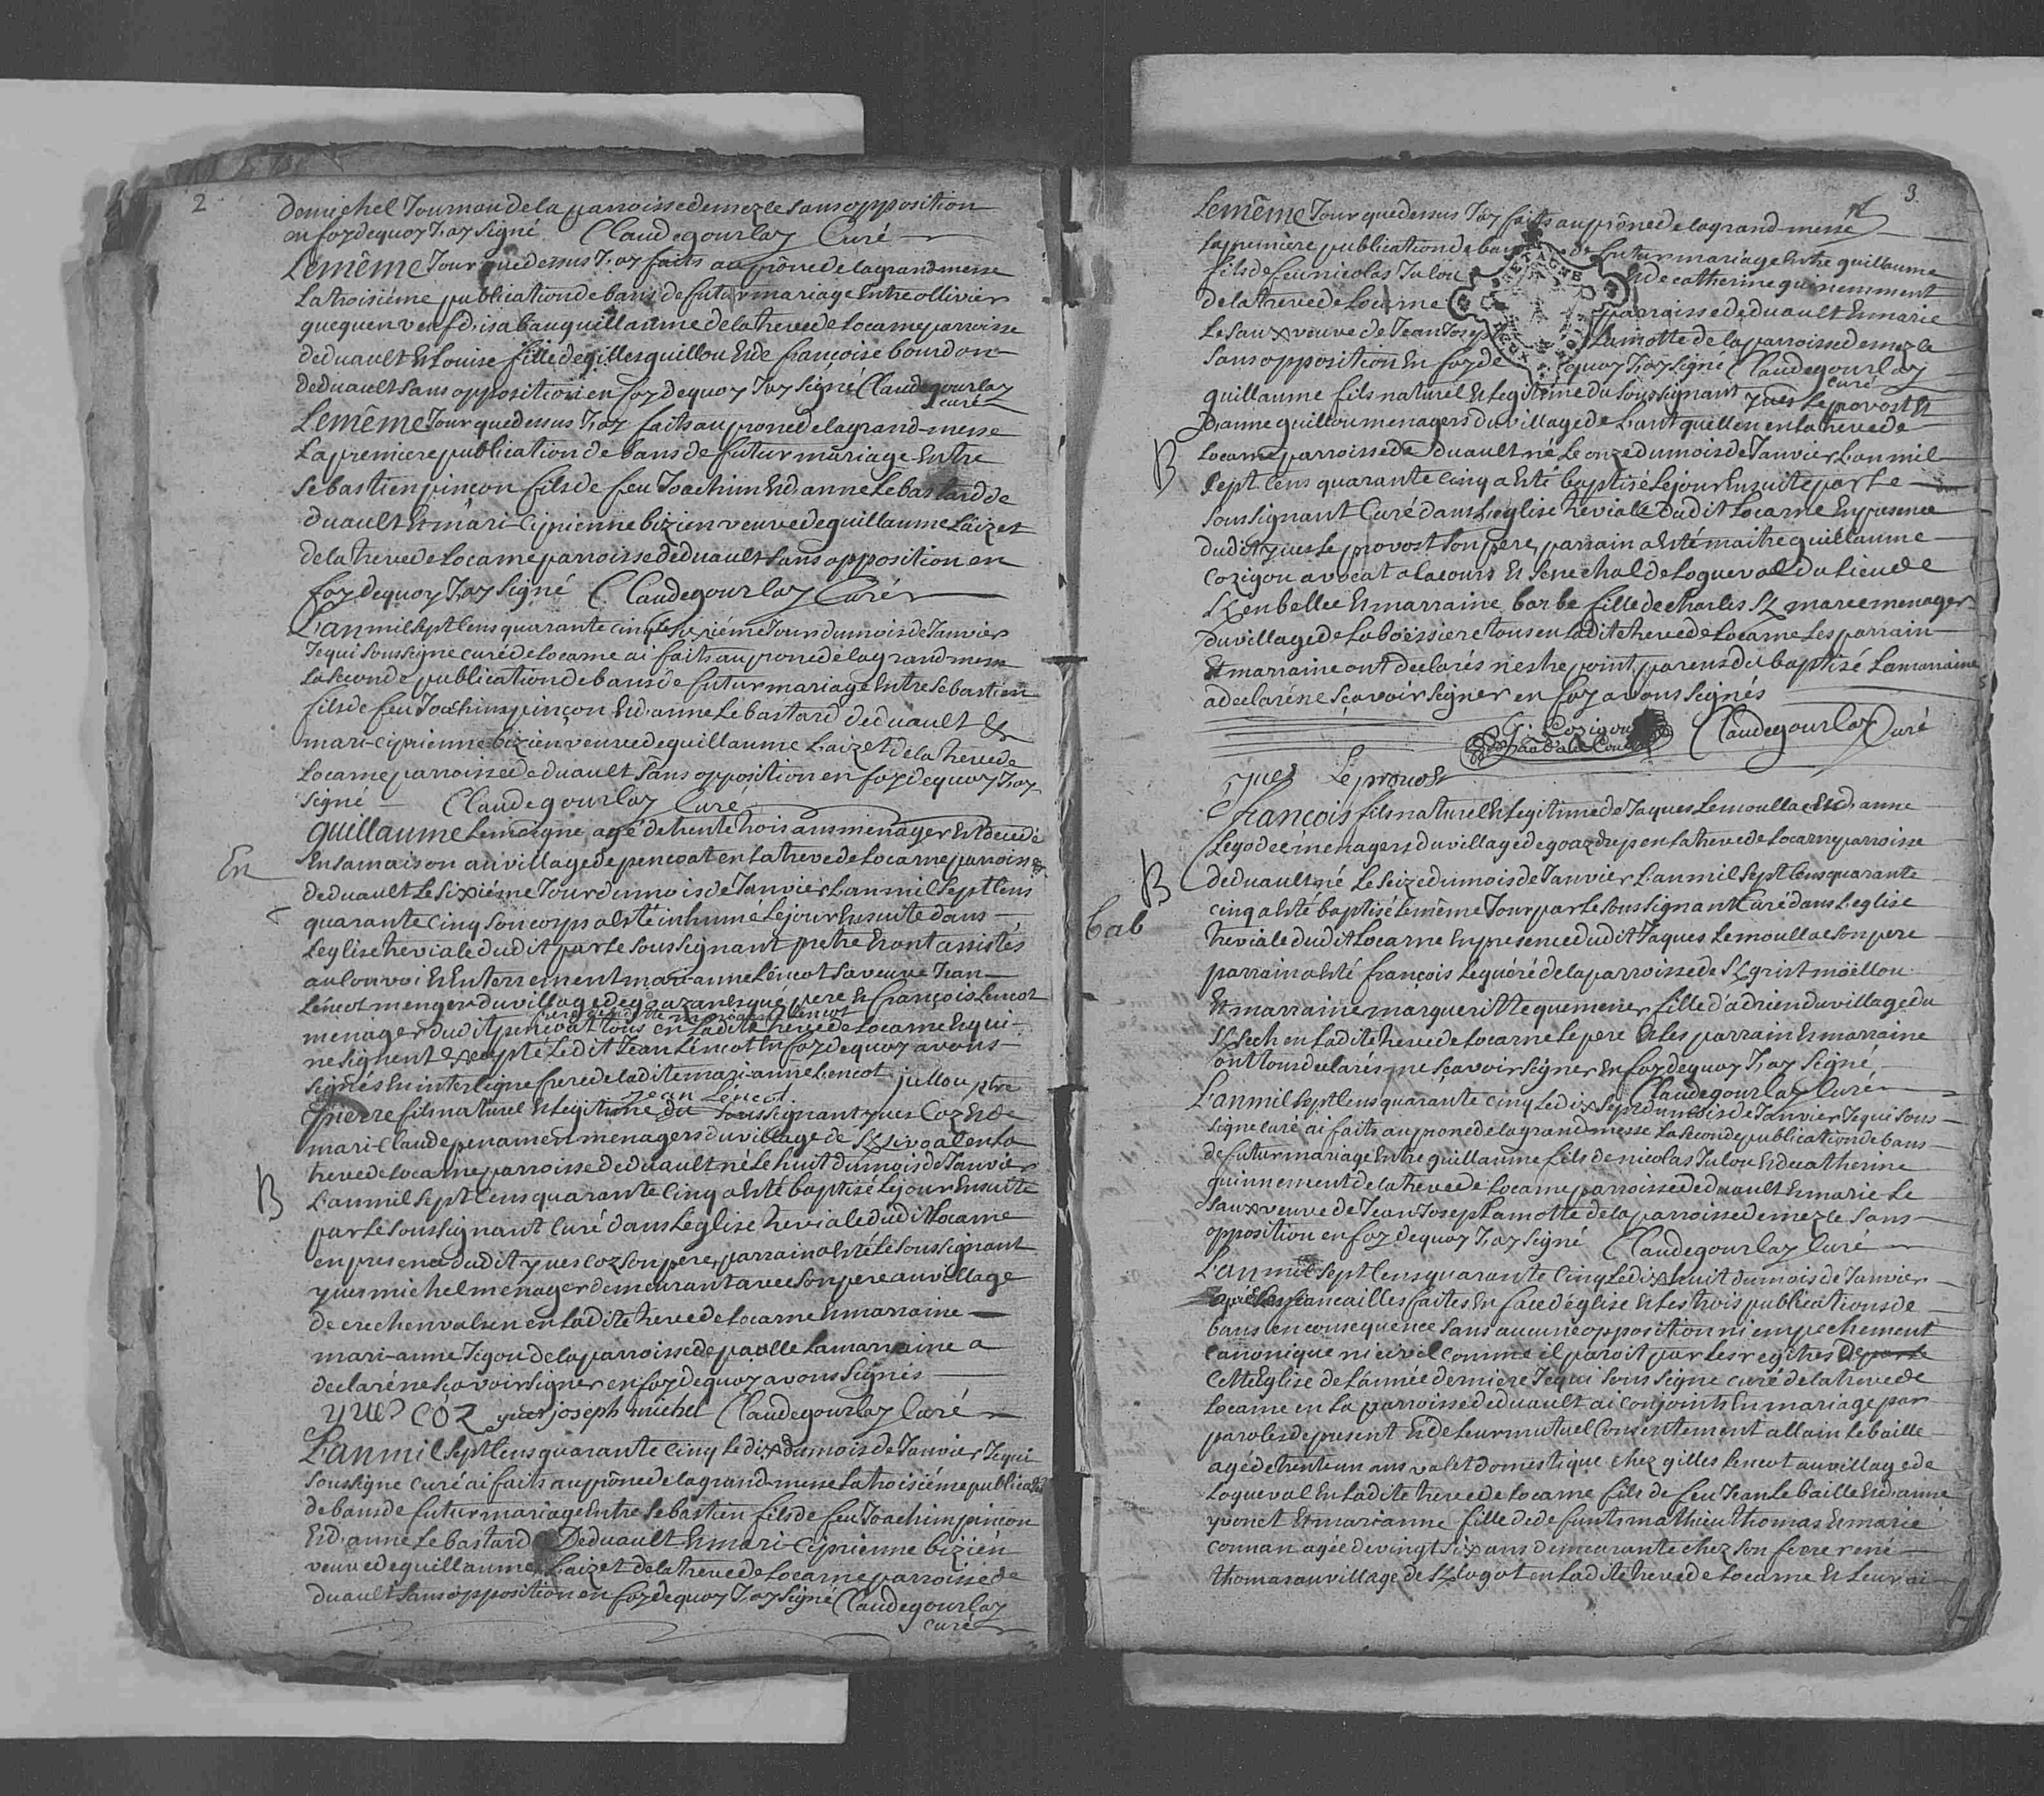 2
demichel Tournou de la parroisse de mezle sans opposition
en foy de quoy J'ay signé Claude gourlay Curé
Le même Jour que dessus J'ay faits au prône de la grand messe
La troisiéme publication de bans de futur mariage Entre ollivier
queguen veuf d'isabau guillaume de la treve de Locarne parroisse
de duault Et Louise fille de gilles guillou Et de françoise bourdon
de duault sans opposition en foy de quoy J'ay signé Claude gourlay
curé
Le même Jour que dessus J'ay faits au prone de la grand-messe
La premiere publication de bans de futur mariage Entre
Sebastien pinçon fils de feu Joachim Et d'anne Le bastard de
duault Et mari-Ciprienne bizien veuve de guillaume Laizet
de la treve de Locarne parroisse de duault sans opposition en
foy de quoy J'ay signé Claude gourlay Curé
L'an mil sept Cens quarante cinq Le sixiéme Jour du mois de Janvier
Je qui soussigne curé de Locarne ai faits au prone de la grand messe
La seconde publication de bans de futur mariage Entre Sebastien
fils de feu Joachim pinçon Et d'anne Le bastard de duault &
mari-ciprienne bizien veuve de guillaume Laizet de la treve de
Locarne parroisse de duault sans opposition en foy de quoy J'ay
signé Claude gourlay Curé
Guillaume Lemoigne agé de trente trois ans menager Est decedé
En
En sa maison au village de pencoat en la treve de Locarne parroisse
de duault Le sixiéme Jour du mois de Janvier L'an mil sept Cens
quarante cinq son corps a Esté inhumé Le jour Ensuite dans
L'eglise treviale dudit par Le soussignant pretre Et ont assistés
au Convoi Et Enterrement mari-anne Léncot sa veuve Jean
Léncot menger du village de goazanesqué pere Et françois Lencot
menager dudit pencoat tous en Ladite treve de Locarne Et qui
ne signent Excepté Ledit Jean Léncot En foy de quoy avons
signés En interligne frere de ladite mari-anne Lencot jullou ptre
Jean Léncot
pierre fils naturel Et Legitime du soussignant yves Coz Et de
mari-Claude penamen menagers du village de St Livoal en La
treve de Locarne parroisse de duault né Le huit du mois de Janvier
B
L'an mil sept Cens quarante Cinq a Esté baptisé Le jour Ensuite
par Le soussignant Curé dans L'eglise treviale dudit Locarne
en presence dudit yves coz son pere, parrain a Esté Le soussignant
yves michel menager demeurant avec son pere au village
de crechenvalsen en Ladite treve de Locarne Et marraine
mari-anne Jegou de la parroisse de paulle La marraine a
declaré ne scavoir signer en foy de quoy avons signés
yues coz yves joseph michel Claude gourlay Curé
L'an mil sept Cens quarante Cinq Le dix du mois de Janvier Je qui
soussigne curé ai faits au prône de la grand-messe La troisiéme publication
de bans de futur mariage Entre Sebastien fils de feu Joachim pincon
Et d'anne Le bastard De duault Et mari-Ciprienne bizien
veuve de guillaume Laizet de la treve de Locarne parroisse de
duault sans opposition en foy de quoy J'ay signé Claude gourlay
curé
3
Le même Jour que dessus J'ay faits au prône de la grand-messe
La premiere publication de bans de futur mariage Entre guillaume
fils de feu nicolas Julou Et de catherine guinemment
de la treve de Locarne parroisse de duault Et marie
Le Saux veuve de Jean Joseph Lamotte de la parroisse de mezle
Sans opposition En foy de quoy J'ay signé Claude gourlay
curé
guillaume fils naturel Et Legitime du soussignant yves Le provost Et
D'anne guillou menagers du village de Lantquillen en La treve de
B
Locarne parroisse de duault né Le onze du mois de Janvier L'an mil
sept Cens quarante Cinq a Esté baptisé Le jour Ensuite par Le
soussignant Curé dans L'eglise treviale dudit Locarne En presence
dudit yves Le provost son pere, parrain a Esté maitre guillaume
Cozigou avocat a la cour Et Senechal de Logueval du Lieu de
Et marraine barbe fille de charles menager
du village de La boëssiere tous en Ladite treve de Locarne Les parrain
Et marraine ont declarés n'estre point parens du baptisé La marraine
a declaré ne sçavoir signer en foy avons signés
G. Cozigou Claude gourlay Curé
yues Le prouost
françois fils naturel Et Legitime de Jaques Lemoullac Et d'anne
Le godec menagers du village de goazdrep en La treve de Locarne parroisse
B
de duault né Le seize du mois de Janvier L'an mil sept Cens quarante
cinq a Esté baptisé Le même Jour par Le soussignant Curé dans L'eglise
bab
treviale dudit Locarne En presence dudit Jaques Lemoullac son pere
parrain a Esté françois Le guéré de la parroisse de St grist moëllou
Et marraine margueritte quemener fille d'adrien du village du
en Ladite treve de Locarne Le pere Et Les parrain Et marraine
ont tous declarés ne sçavoir signer En foy de quoy J'ay signé
Claude gourlay Curé
L'an mil sept Cens quarante cinq Le dix sept du mois de Janvier Je qui sous
signe curé ai faits au prone de la grand messe La seconde publication de bans
de futur mariage Entre guillaume fils de nicolas Julou Et de catherine
guinnement de la treve de Locarne parroisse de duault Et marie Le
saux veuve de Jean Joseph Lamotte de la parroisse de mezle Sans
opposition en foy de quoy J'ay signé Claude gourlay Curé
L'an mil sept Cens quarante Cinq Le dix huit du mois de Janvier
aprés Les fiancailles faites En face d'église Et Les trois publications de
bans en consequence sans aucune opposition ni empechement
canonique ni civil comme il paroit par Les regitres de
Cette Eglise de L'année derniere Je qui soussigne curé de la treve de
Locarne en La parroisse de duault ai Conjoints En mariage par
paroles de present Et de Leur mutuel Consentement allain Le baille
agé de trente un ans valet domestique chez gilles Lencot au village de
Logueval En Ladite treve de Locarne fils de feu Jean Le baille Et d'anne
yvonct Et marianne fille de defunts mathieu thomas Et marie
connan agée de vingt six ans demeurante chez son frere rené
thomas au village de St Lugot en Ladite treve de Locarne Et Leur ai